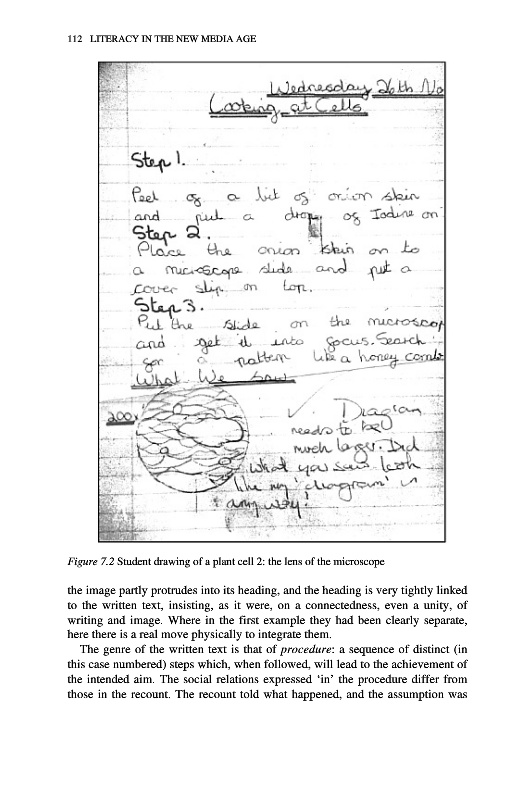 112 LITERACY IN THE NEW MEDIA AGE
Wednesday 26th No
Looking at Cells
Step 1.
Peel of a bit of onion skin
and put a drop of Iodine on
Step 2.
Place the onion skin on to
a microscope slide and put a
cover slip on top.
Step 3.
Put the slide on the microscop
and get it into focus. Search
for a pattern like a honey comb
What We Saw
200x
Diagram
needs to be
much larger. Did
what you saw look
like my 'diagram' in
any way?
Figure 7.2 Student drawing of a plant cell 2: the lens of the microscope
the image partly protrudes into its heading, and the heading is very tightly linked
to the written text, insisting, as it were, on a connectedness, even a unity, of
writing and image. Where in the first example they had been clearly separate,
here there is a real move physically to integrate them.
The genre of the written text is that of procedure: a sequence of distinct (in
this case numbered) steps which, when followed, will lead to the achievement of
the intended aim. The social relations expressed ‘in’ the procedure differ from
those in the recount. The recount told what happened, and the assumption was